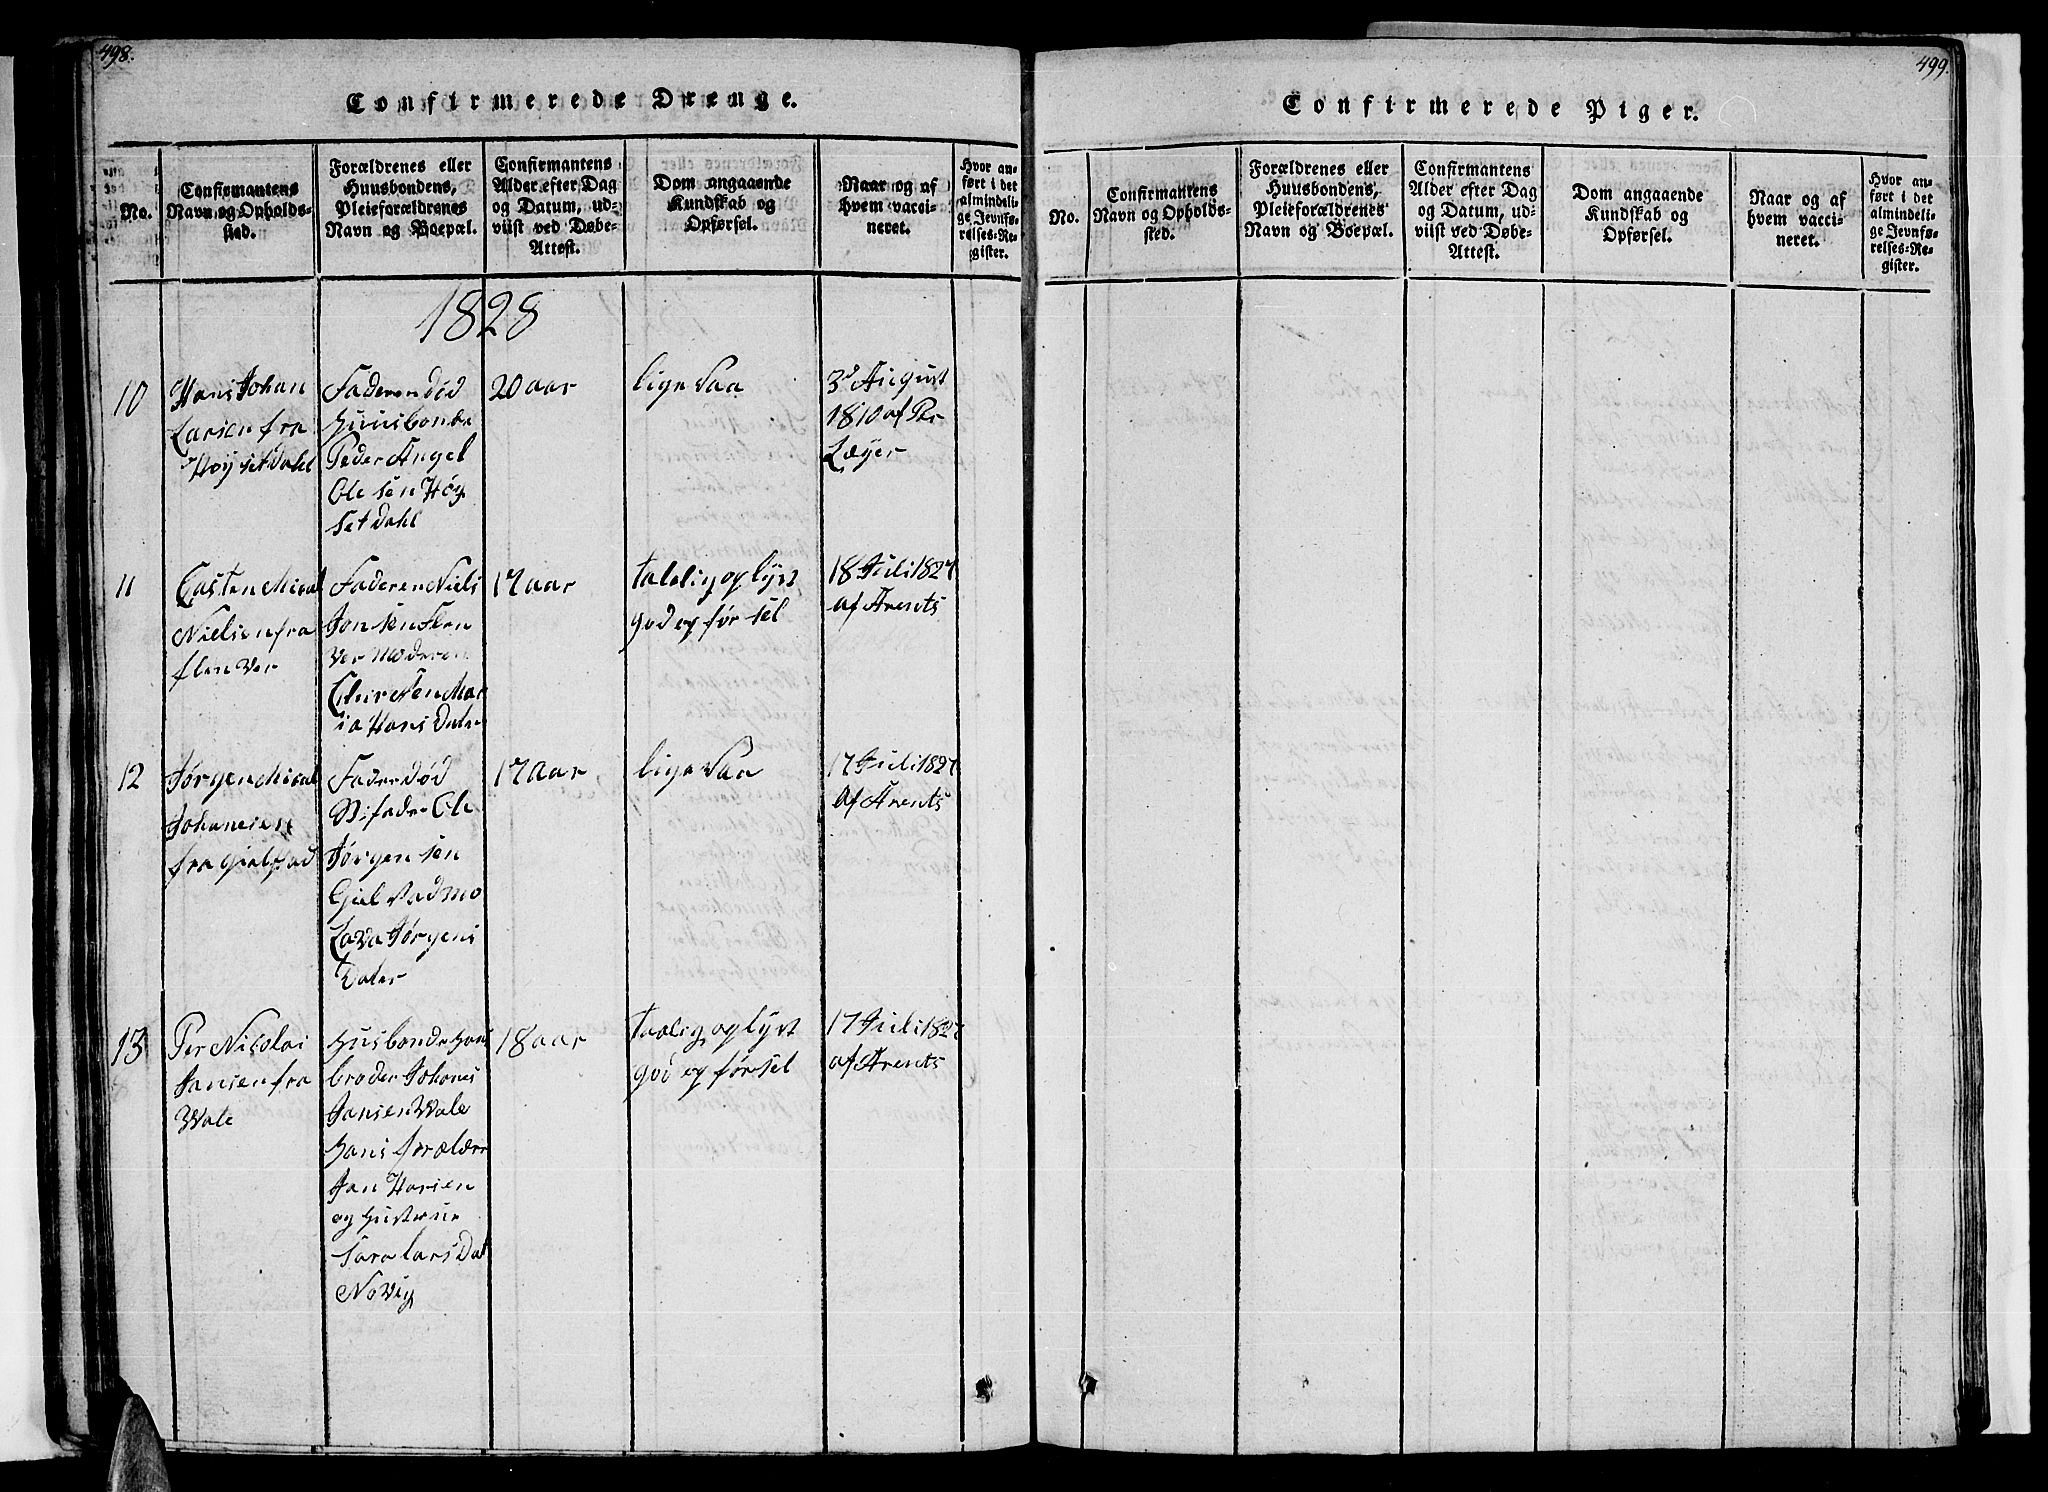 498.
Confirmerede Drenge.
No.
Confirmantens
Navn og Opholds-
sted.
Forældrenes eller
Huusbondens,
Pleieforældrenes
Navn og Boepæl.
Confirmantens
Alder efter Dag
og Datum, ud-
viist ved Døbe-
Attest.
Dom angaaende
Kundskab og
Opførsel.
Naar og af
hvem vacci-
neret.
Hvor an-
ført i det
almindeli-
ge Jevnfø-
relses-Re-
gister.
1828
10
Hans Johan
Larsen fra
Høysetdahl
Faderen död
Huusbonde
Peder Angel
Olesen Høy
setdahl
20 aar
lige saa
3d August
1810 af Per
Læyer
11
Casten Mical
Nielsen fra
flenver
Faderen Niels
Jonsen flen
ver moderen
Chirsten Mar
ia Hans Dater
17 aar
talelig oplyst
god opførsel
18 Juli 1827
af Arents
12
Jørgen Mical
Johansen
fra Gielstad
Fader död
Stifader Ole
Jørgensen
Gielstad mo
Lava Jørgens
Dater
17 Aar
lige saa
17 Juli 1827
af Arents
13
Per Nicolai
Jansen fra
Wale
Husbonde hans
broder Johanes
Jansen Wale
hans forældre
Jan Hansen
og Hustrue
Sara Lars Dat
Novig
18 aar
taalig oplyst
god opførsel
17 Juli 1827
af Arents
499.
Confirmerede Piger.
No.
Confirmantens
Navn og Opholds-
sted.
Forældrenes eller
Huusbondens,
Pleieforældrenes
Navn og Boepæl.
Confirmantens
Alder efter Dag
og Datum, ud-
viist ved Døbe-
Attest.
Dom angaaende
Kundskab og
Opførsel.
Naar og af
hvem vacci-
neret.
Hvor an-
ført i det
almindeli-
ge Jevnfø-
relses-Re-
gister.